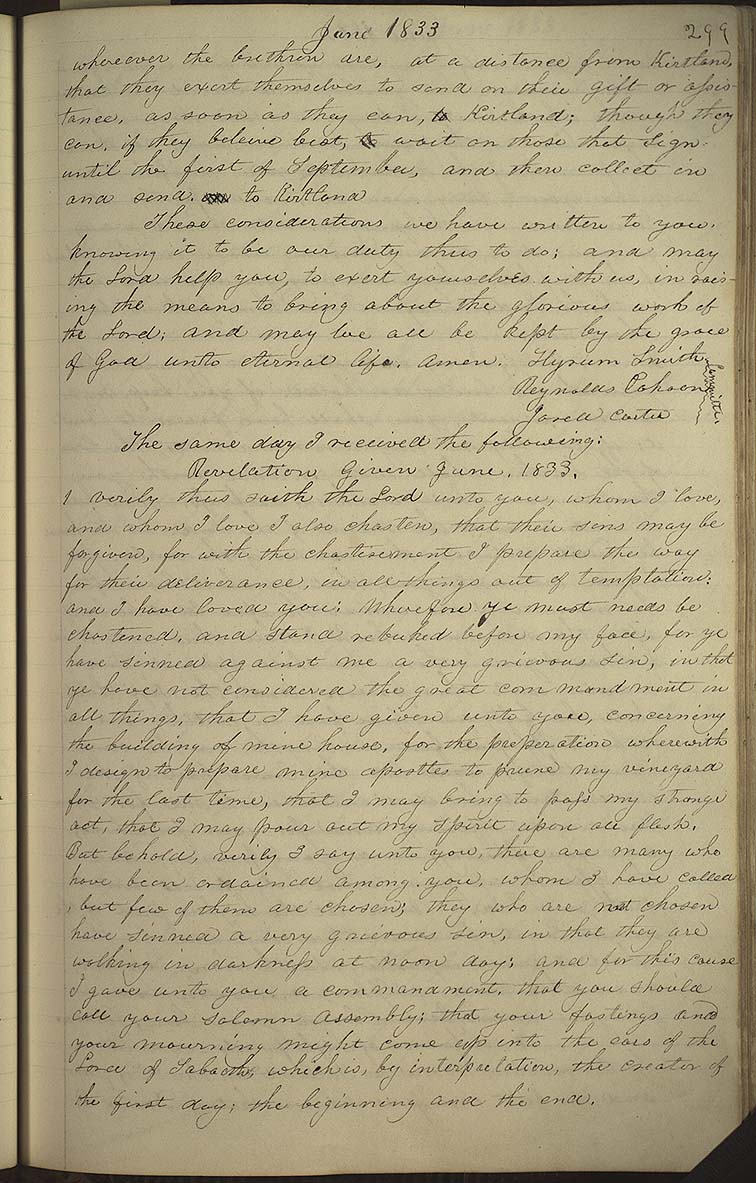 June 1833 299
whereever the brethren are, at a distance from Kirtland,
that they exert themselves to send on their gift or assis-
tance, as soon as they can, to Kirtland; though they
can, if they beleive best, to wait on those that sign
until the first of September, and then collect in
and send. to Kirtland
These considerations we have written to you,
knowing it to be our duty thus to do; and may
the Lord help you, to exert yourselves with us, in rais-
ing the means to bring about the glorious work of
the Lord; and may we all be kept by the grace
of God unto eternal life. Amen. Hyrum Smith
Reynolds Cahoon
Jared Carter
Committee.
The same day I received the following:
Revelation Given June, 1833.
1 verily thus saith the Lord unto you, whom I love,
and whom I love I also chasten, that their sins may be
forgiven, for with the chastisement I prepare the way
for their deliverance, in all things out of temptation:
and I have loved you: Wherefore ye must needs be
chastened, and stand rebuked before my face, for ye
have sinned against me a very grievous sin, in that
ye have not considered the great commandment in
all things, that I have given unto you, concerning
the building of mine house, for the preperation wherewith
I design to prepare mine apostles to prune my vineyard
for the last time, that I may bring to pass my strange
act, that I may pour out my spirit upon all flesh.
But behold, verily I say unto you, there are many who
have been ordained among you, whom I have called
, but few of them are chosen; they who are not chosen
have sinned a very grievous sin, in that they are
walking in darkness at noon day; and for this cause
I gave unto you a commandment, that you should
call your solemn assembly; that your fastings and
your mourning might come up into the ears of the
Lord of Sabaoth, which is, by interpretation, the creator of
the first day; the beginning and the end.